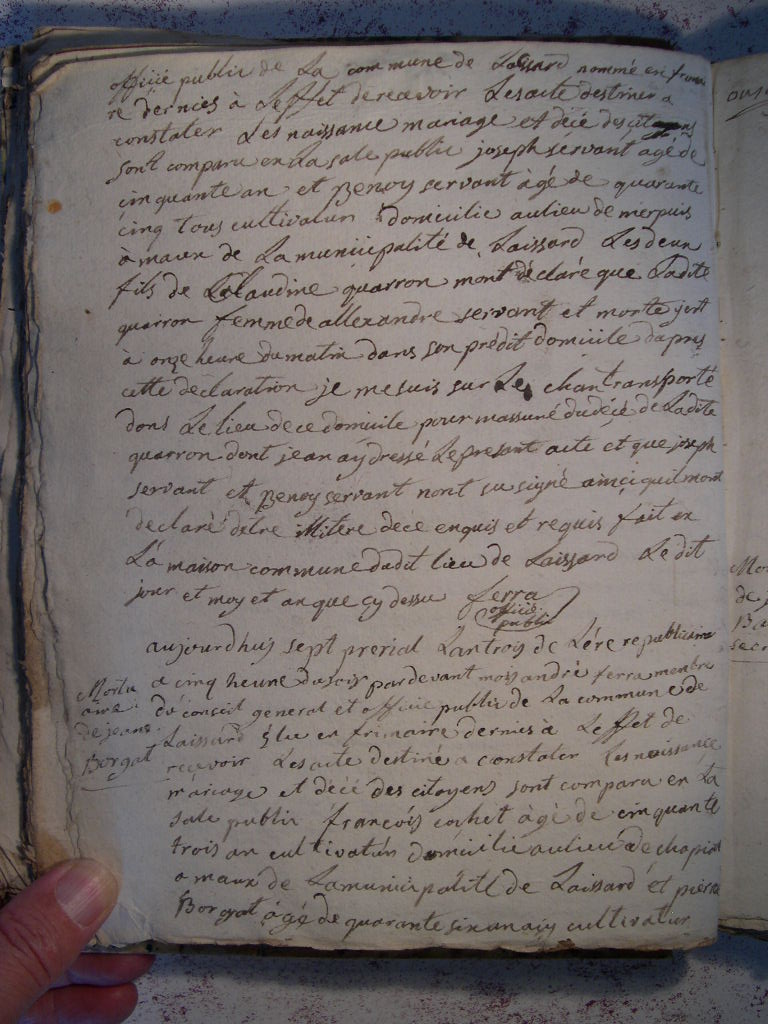 officie public de La commune de Laissard nommé en frimai
re dernies à Leffet derecevoir Lesacte destiner a
constater Les naissance mariage et décé des citoyens
sont comparu en La sale public joseph servant agé de
cinquante an et Benoy servant àgé de quarante
cinq tous cultivatun domicilie aulieu de merpuis
à maux de La municipalité de Laissard Lesdeux
fils de Claudine quarron mont déclaré que Ladite
quarron femme de allexandre servant et morte
à onze heure du matin dans son prédit domicile dapres
cette declaration je mesuis sur Le chan transporté
dans Le lieu dece domicile pour massuré du décé de Ladite
quarron dont jean ay dressé Le present acte et que joseph
servant et Benoy servant nont su signé ainci quil mont
declaré detre illitere dece enquis et requis fait en
La maison commune dudit lieu de Laissard Le dit
jour et moy et an que cy dessu ferra
officié
public
aujourdhuy sept prerial Lantroy de Lére republicaine
a cinq heure dusoir pardevant moi andré ferra membre
du conseil general et officie public de La commune de
Laissard élu en frimaire dernies à Leffet de
recevoir Lesacte destiné a constater Les naissance
mariage et décé des citoyens sont comparu en La
sale public françois cochet àgé de cinquante
trois an cultivatun domicilie aulieu de chapian
a maux de La municipalité de Laissard et pierre
Borgat àgé de quarante six an aussy cultivatur
Mortu
aire
de jeane
Borgat